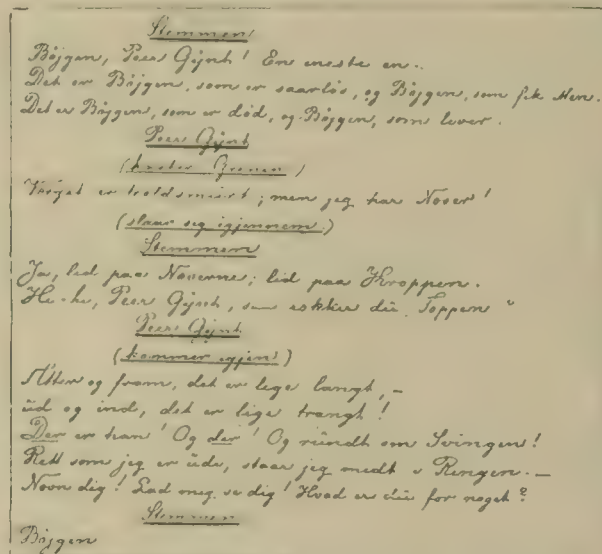 Stemmen
Böjgen, Peer Gÿnt! En eneste en.
Det er Böjgen, som er saarlös, og Böjgen, som fik Men.
Det er Böjgen, som er död, og Böjgen, som lever.
Peer Gÿnt
(kaster Grenen)
Værget er troldsmurt; men jeg har Næver!
(slaar seg igjennem)
Stemmen
Ja, lid paa Næverne; lid paa Kroppen.
He-he, Peer Gÿnt, du Toppen
Peer Gÿnt
(kommer igjen)
Atter og fram, det er lige langt, –
üd og ind, det er lige trangt!
Der er han! Og der! Og ründt om Svingen!
Rett som jeg er üde, staar jeg medt i Ringen. –
Nævn dig! Lad meg se dig! Hvad er dü for noget?
Stemmen
Böjgen